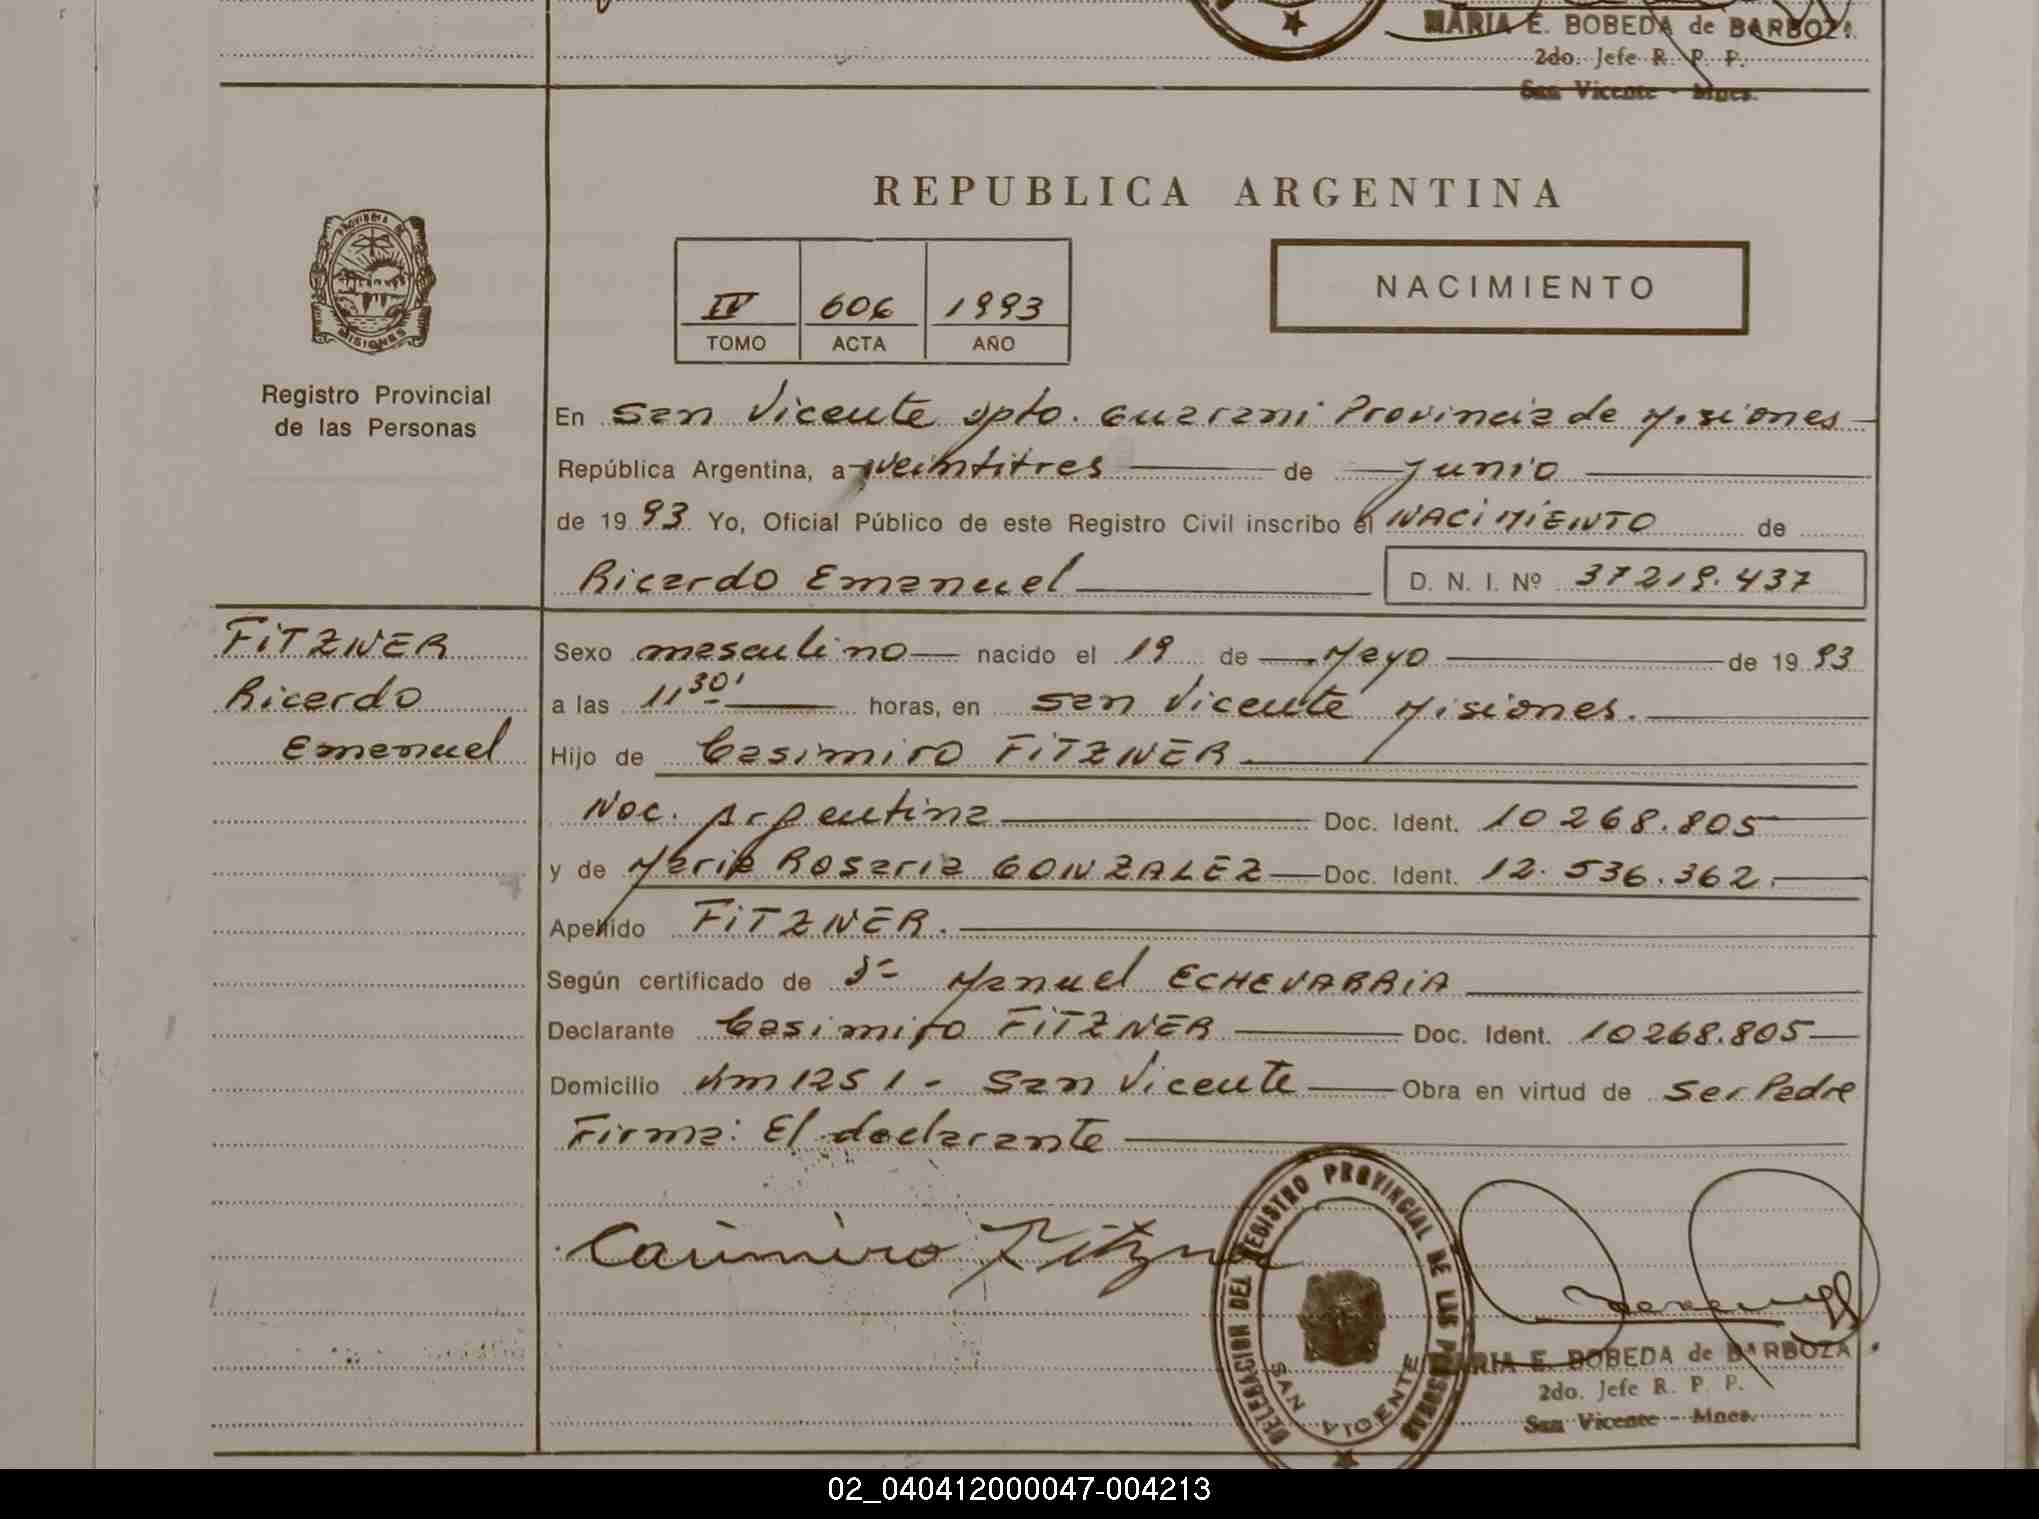 MARIA E. BOBEDA de BARBOZA
2do. Jefe R. P. P.
San Vicente - Mnes.
REPUBLICA ARGENTINA
PROVINCIA DE
MISIONES
Registro Provincial
de las Personas
IV 606 1993
TOMO ACTA AÑO
NACIMIENTO
En San Vicente Dpto. Guarani Provincia de Misiones
República Argentina, a veintitres de Junio
de 1993 Yo, Oficial Público de este Registro Civil inscribo el NACIMIENTO de
Ricardo Emanuel D. N. I. Nº 37219.437
FITZNER
Ricardo
Emanuel
Sexo masculino nacido el 19 de Mayo de 1993
a las 11 30' horas, en San Vicente Misiones.
Hijo de Casimiro FITZNER
Nac. Argentina Doc. Ident. 10268.805
y de Maria Rosaria GONZALEZ Doc. Ident. 12.536.362.
Apellido FITZNER.
Según certificado de Manuel ECHEVARRIA
Declarante Casimiro FITZNER Doc. Ident. 10268.805
Domicilio Km 1251 - San Vicente Obra en virtud de Ser Padre
Firma: El declarante
Casimiro Fitzner
DELEGACION DEL REGISTRO PROVINCIAL DE LAS PERSONAS
SAN VICENTE
MARIA E. BOBEDA de BARBOZA
2do. Jefe R. P. P.
San Vicente - Mnes.
02_040412000047-004213